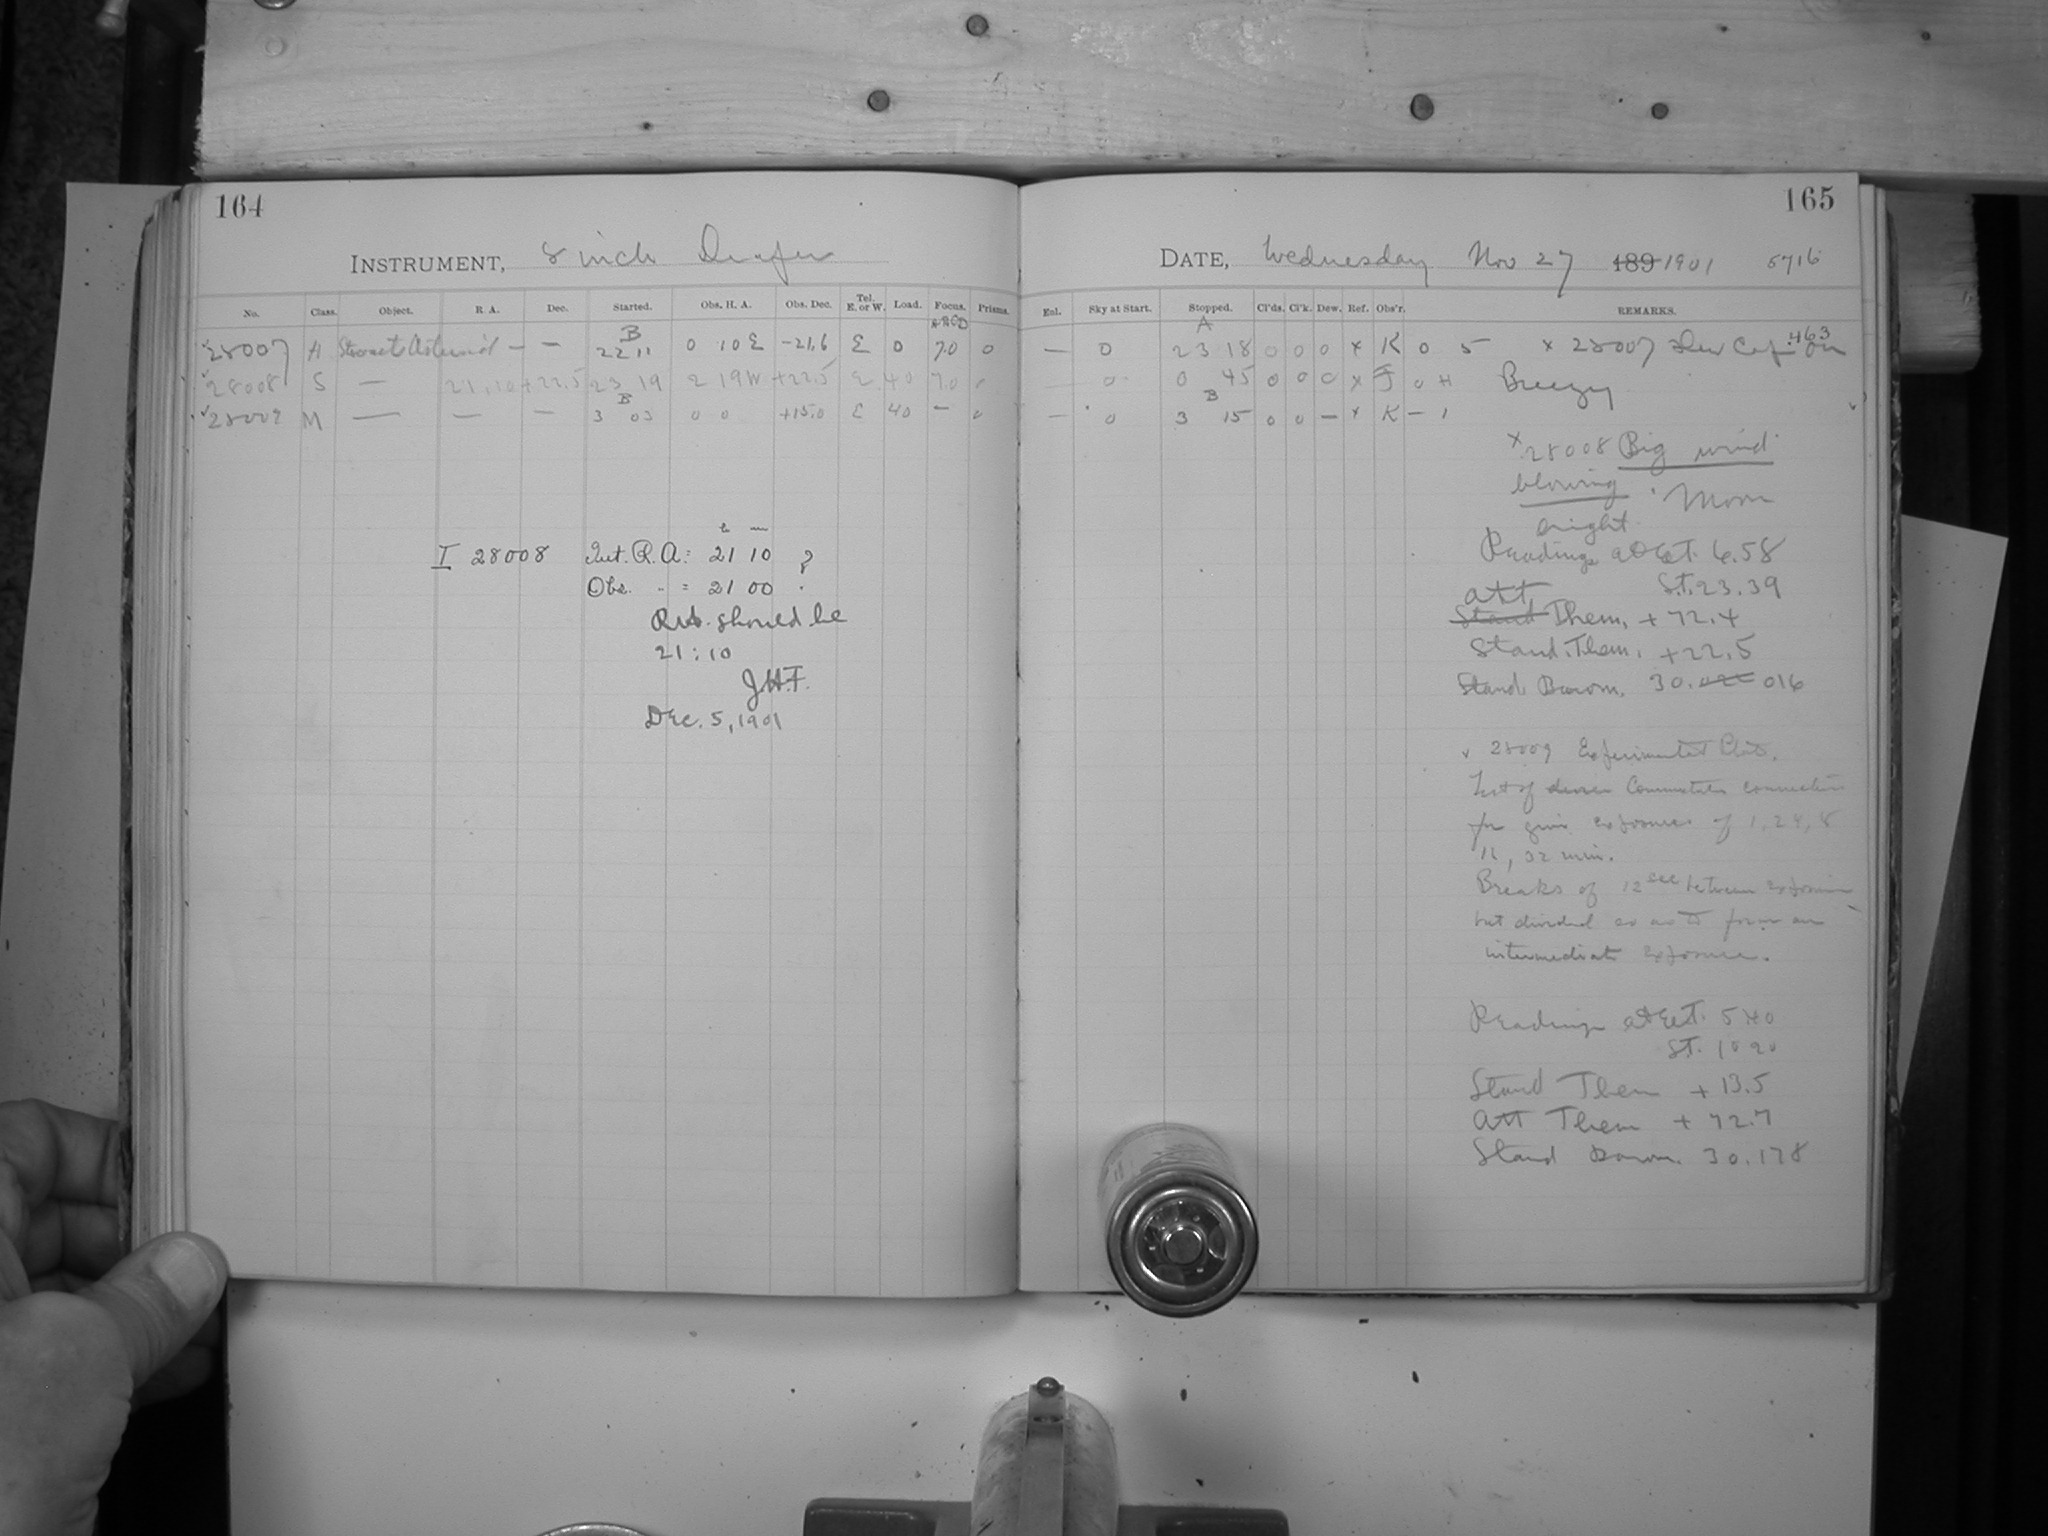 164
INSTRUMENT, 8 inch Draper
No. Class. Object. R. A. Dec. Started. Obs. H. A. Obs. Dec. Tel. E. or W. Load. Focus. Prisms.
28007 A Asteroid — — B 22 11 0 10 E -21.6 E 0 7.0 0
28008 S — 21.10 +22.5 23 19 2 19 W +22.5 E 40 7.0
28009 M — — — B 3 03 0 0 +15.0 E 40 — 0
h m
I 28008 Int. R.A: 21 10 ?
Obs. " = 21 00 .
should be
21:10
J.H.F.
Dec. 5, 1901
165
DATE, Wednesday Nov 27 189 1901 5716
Enl. Sky at Start. Stopped. Cl'ds. Cl'k. Dew. Ref. Obs'r. REMARKS.
— 0 A 23 18 0 0 0 x K 0 5 x 28007 Dew Cap .463 on
— 0 0 45 0 0 0 x J 0 H Breezy
— 0 B 3 15 0 0 — x K — 1
x 28008 Big wind
blowing Moon
bright
Readings at E.T. 6.58
S.T. 23.39
Att.
Stand Them. +72.4
Stand. Them. +22.5
Stand Barom. 30. 016
28009 Experimental Plate.
Test of Commutator connections
for giving exposures of 1, 2 4, 8
16, 32 min.
Breaks of 12 sec between exposures
but divided so as to form an
intermediate exposure.
Readings at E.T. 5 40
S.T. 10 20
Stand Them +13.5
Att Them +72.7
Stand Barom. 30.178